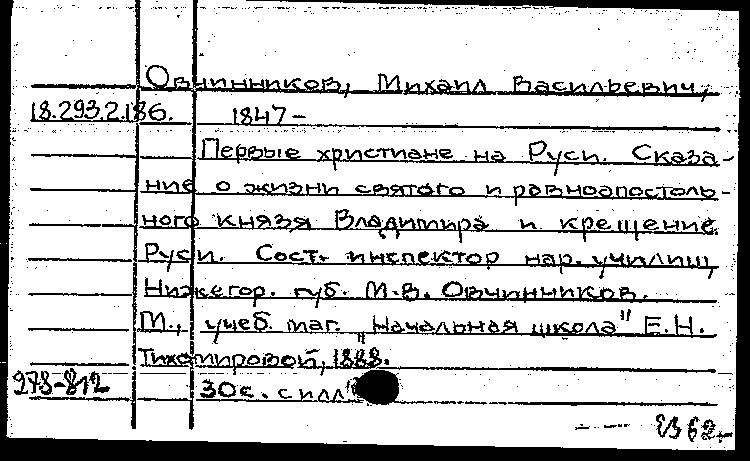 Овчинников, Михаил Васильевич,
18.293.2.186. 1847-
Первые христиане на Руси. Сказа-
ние о жизни святого и равноапостоль-
ного князя Владимира и крещение
Руси. Сост. инспектор нар. училищ
Нижегор. губ. М.В. Овчинников.
М., учеб. маг. "Начальная школа" Е.Н.
Тихомировой, 1888.
278-812 30с. с илл.
62